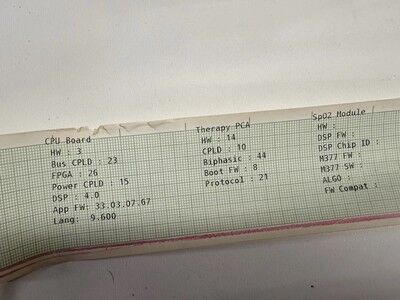 CPU Board
HW : 3
Bus CPLD : 23
FPGA : 26
Power CPLD : 15
DSP : 4.0
App FW: 33.03.07.67
Lang: 9.600
Therapy PCA
HW : 14
CPLD : 10
Biphasic : 44
Boot FW : 8
Protocol : 21
SpO2 Module
HW :
DSP FW :
DSP Chip ID :
M377 FW :
M377 SW :
ALGO :
FW Compat :